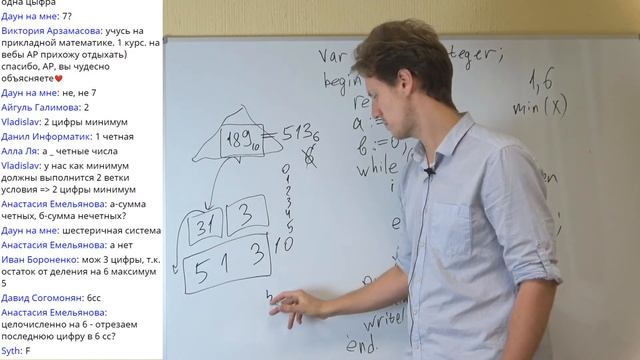 одна цыфра
Даун на мне: 7?
Виктория Арзамасова: учусь на
прикладной математике. 1 курс. на
вебы АР прихожу отдыхать)
спасибо, АР, вы чудесно
объясняете❤
Даун на мне: не, не 7
Айгуль Галимова: 2
Vladislav: 2 цифры минимум
Данил Информатик: 1 четная
Алла Ля: а _ четные числа
Vladislav: у нас как минимум
должны выполнится 2 ветки
условия => 2 цифры минимум
Анастасия Емельянова: а-сумма
четных, б-сумма нечетных?
Даун на мне: шестеричная система
Анастасия Емельянова: а нет
Иван Бороненко: мож 3 цифры, т.к.
остаток от деления на 6 максимум
5
Давид Согомонян: 6сс
Анастасия Емельянова:
целочисленно на 6 - отрезаем
последнюю цифру в 6 сс?
Syth: F
189₁₀ = 513₆
0
1
2
3
4
5
10
31 3
5 1 3
Var
begin
a:=
b:=0;
while
end.
1,6
min(X)